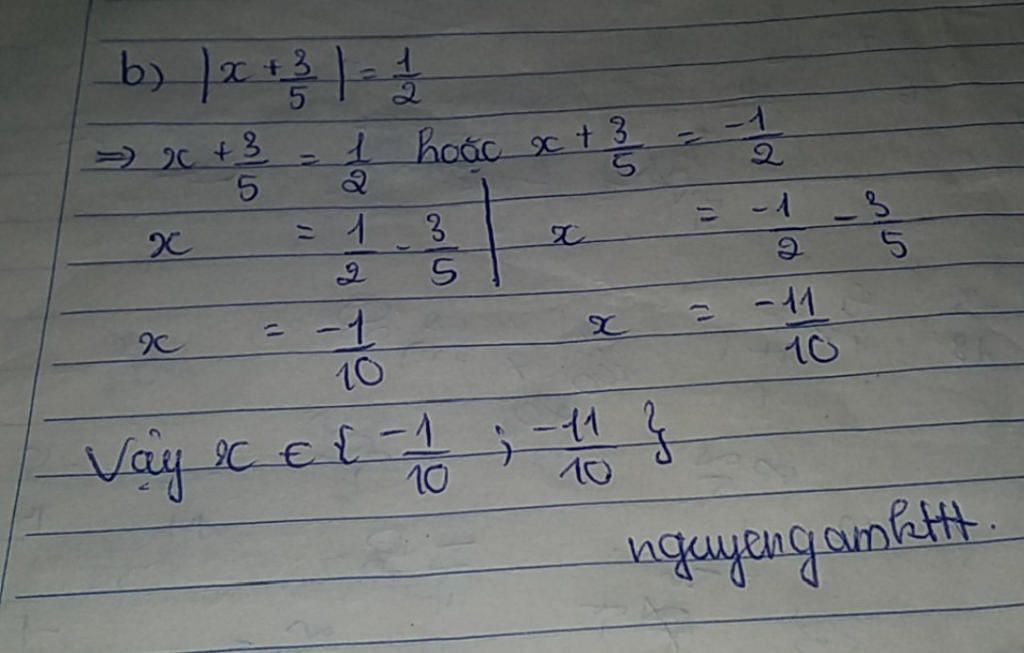 b) |x + 3/5| = 1/2
=> x + 3/5 = 1/2 hoặc x + 3/5 = -1/2
x = 1/2 - 3/5 | x = -1/2 - 3/5
x = -1/10 x = -11/10
Vậy x ∈ { -1/10 ; -11/10 }
nguyengamkttt.